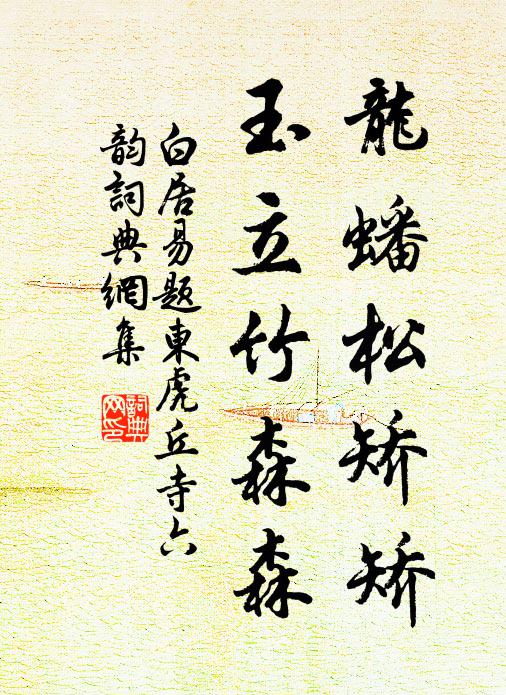 龍蟠松矯矯
玉立竹森森
白居易題東虎丘寺六
韵詞典網集
詞典
网印